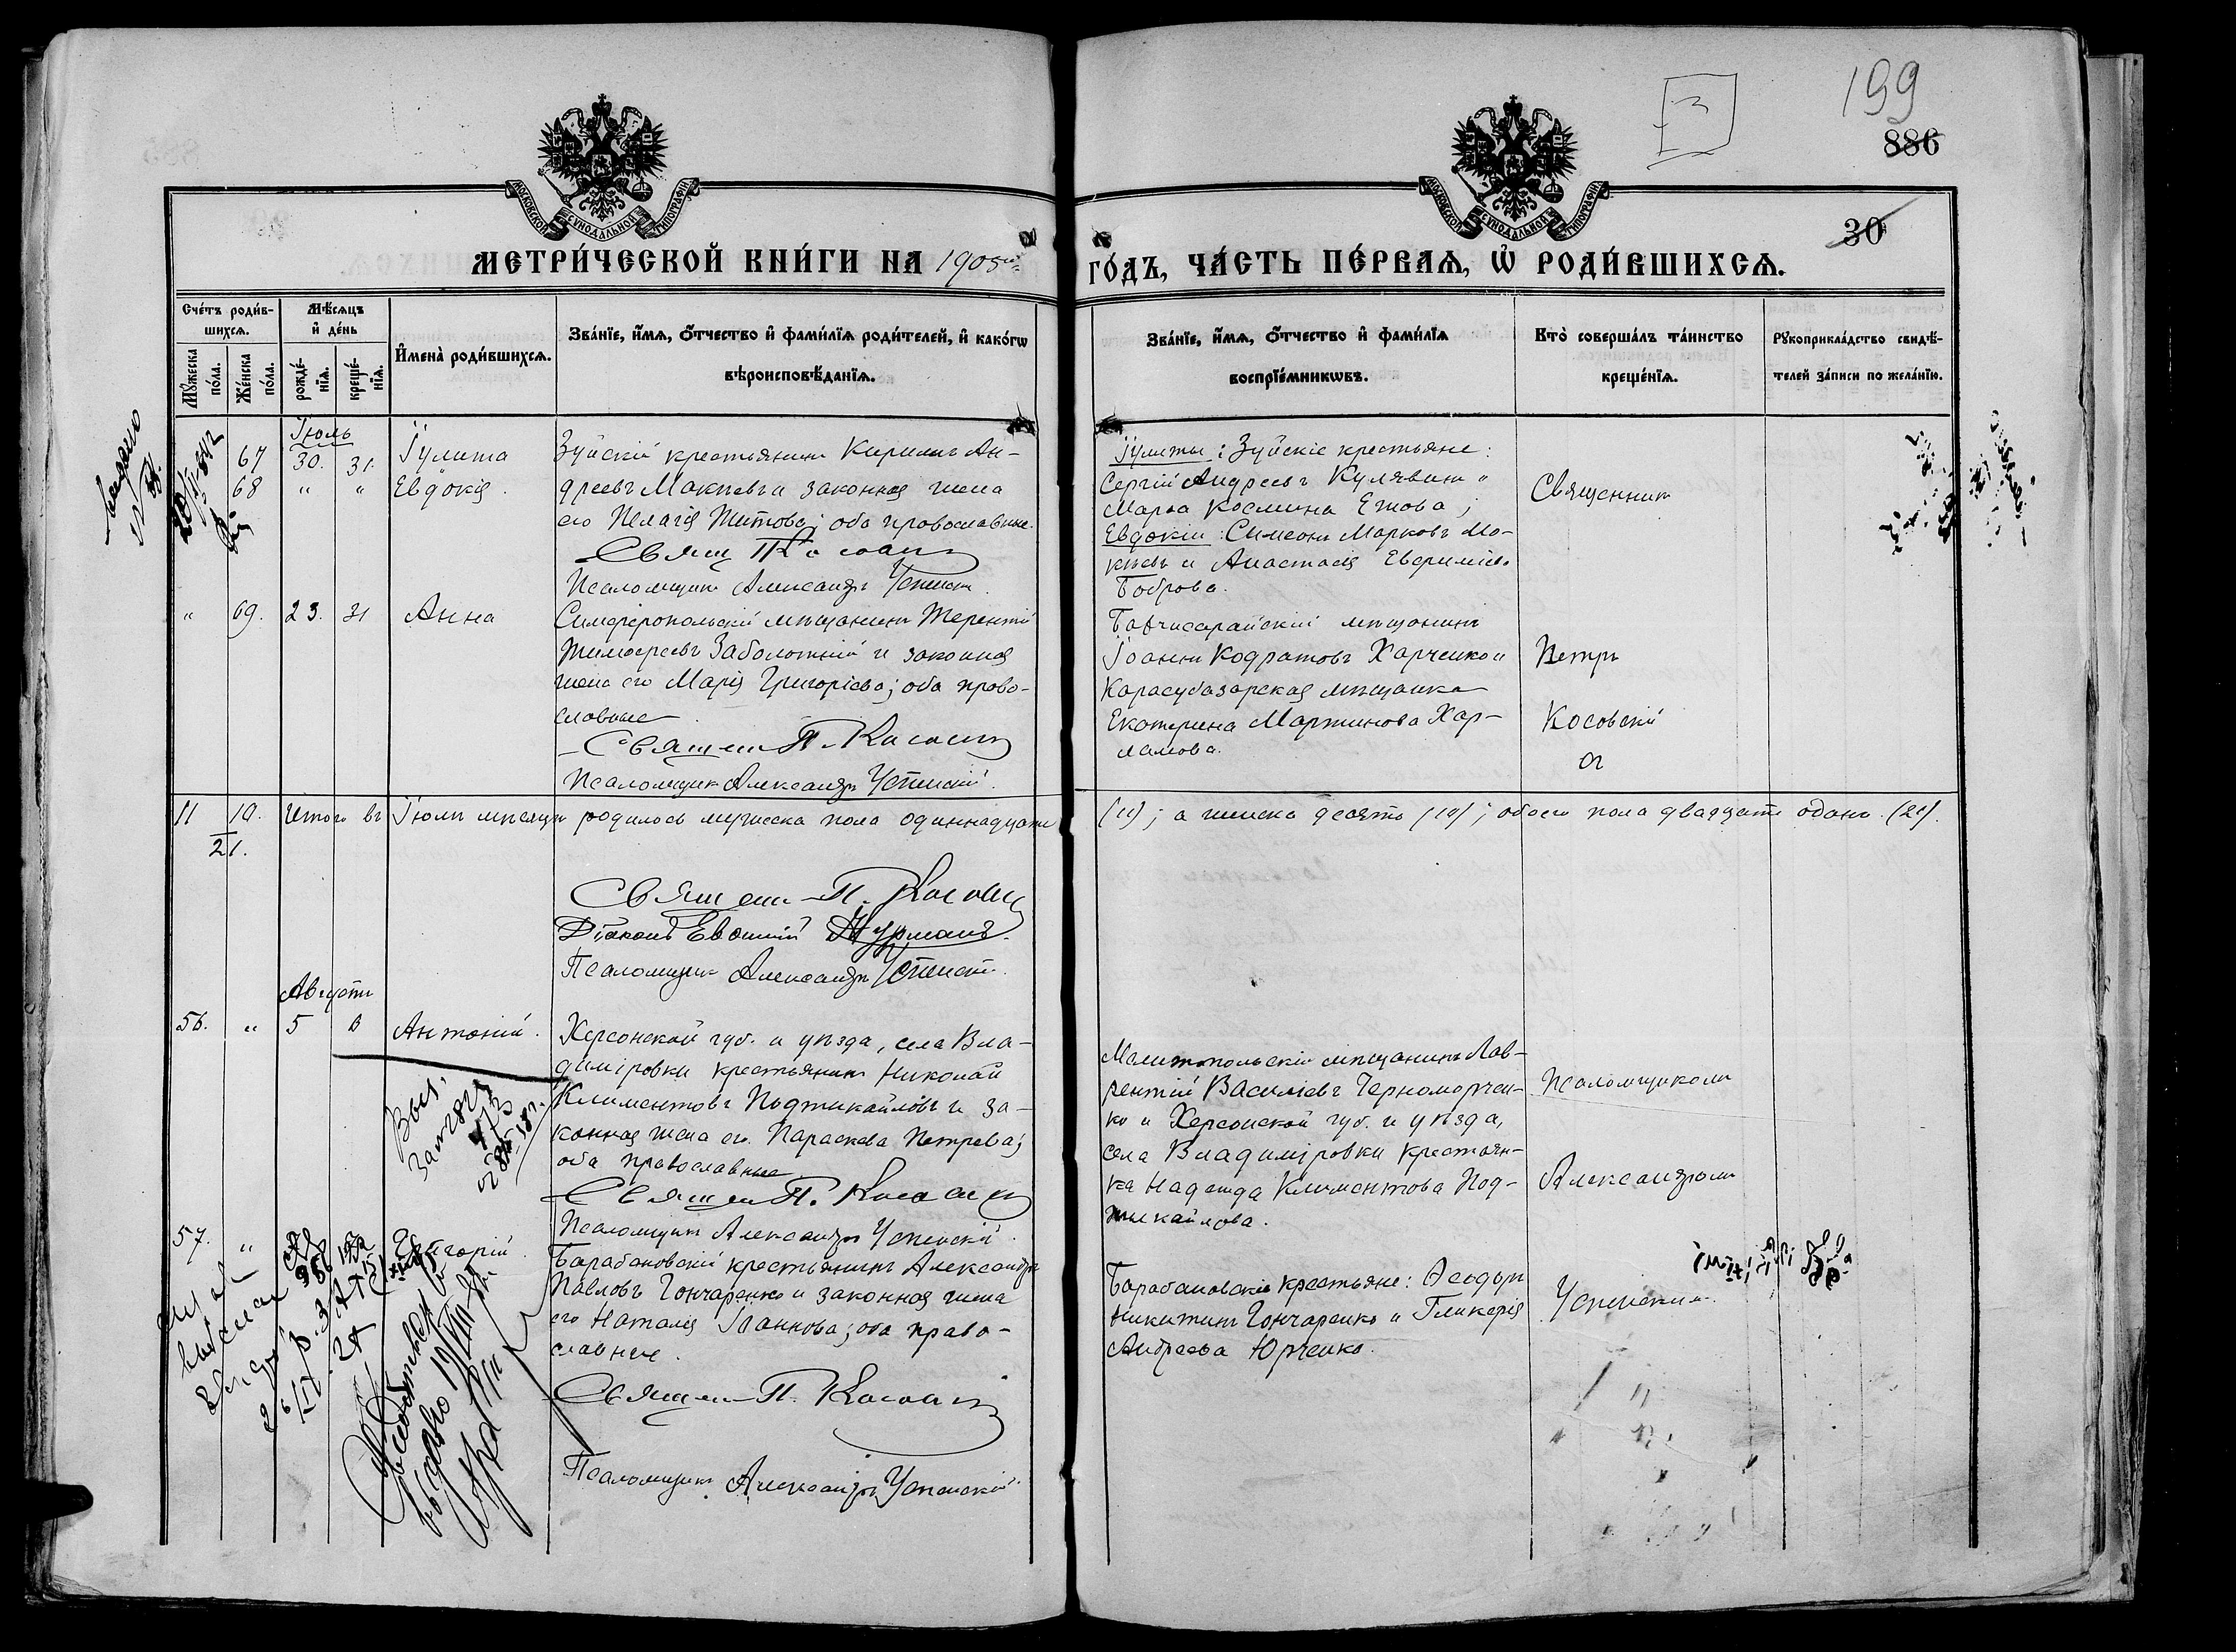 199
886
30
МЕТРИ́ЧЕСКОЙ КНИ́ГИ НА 1905й
ГО́ДЪ, ЧА́СТЬ ПЕ́РВАЯ, Ѡ҆ РОДИ́ВШИХСЯ.
МОСКОВСКОЙ СѴНОДАЛЬНОЙ ТИПОГРАФІИ
МОСКОВСКОЙ СѴНОДАЛЬНОЙ ТИПОГРАФІИ
Сче́тъ роди́в-
шихся.
Мѣ́сяцъ
и҆ де́нь
Мꙋ́жеска по́ла.
Же́нска по́ла.
рожде́-нїя.
креще́-нїя.
И҆мена̀ роди́вшихся.
Зва́нїе, и҆́мя, ѻ҆́тчество и҆ фами́лїя роди́телей, и҆ како́гѡ
вѣроисповѣ́данїя.
Зва́нїе, и҆́мя, ѻ҆́тчество и҆ фами́лїя
воспрїе́мникѡвъ.
Кто̀ соверша́лъ та́инство
креще́нїя.
Рꙋкоприкла́дство свидѣ́-
телей за́писи по жела́нїю.
Іюль
67 30. 31. Іулита
68 " " Евдокія.
Зуйскій крестьянинъ Кириллъ Ан-
дреевъ Мокѣевъ и законная жена
его Пелагія Титова; оба православные.
Свящ П. Косовскій
Псаломщикъ Александръ Успенскій.
Іулиты: Зуйскіе крестьяне:
Сергій Андреевъ Кулявинъ и
Марѳа Космина Ежова;
Евдокіи: Симеонъ Марковъ Мо-
кѣевъ и Анастасія Евѳиміева
Боброва.
Священникъ
" 69. 23. 31 Анна
Симферопольскій мѣщанинъ Терентій
Тимоѳеевъ Заболотній и законная
жена его Марія Григоріева; оба право-
славные.
Священ П. Косовскій
Псаломщикъ Александръ Успенскій.
Бахчисарайскій мѣщанинъ
Іоаннъ Кодратовъ Харченко и
Карасубазарская мѣщанка
Екатерина Мартинова Хар-
ламова.
Петръ
Косовскій
съ
11 10. Итого въ Іюлѣ мѣсяцѣ родилось мужеска пола одиннадцать (11); а женска десять (10); обоего пола двадцать одинъ. (21).
21.
Священ П. Косовскій
Діаконъ Евѳимій
Псаломщикъ Александръ Успенскій.
Августъ
56. " 5 6 Антоній.
Херсонской губ. и уѣзда, села Вла-
диміровки крестьянинъ Николай
КлиментовъПодтикайловъ и за-
конная жена его Параскева Петрова;
оба православные.
Священ П. Косовскій
Псаломщикъ Александръ Успенскій.
Мелитопольскій мѣщанинъ Лав-
рентій Василіевъ Черноморчен-
ко и Херсонской губ. и уѣзда,
села Владиміровки крестьян-
ка Надежда Климентова Под-
тикайлова.
Псаломщикомъ
Александромъ
57. " Григорій.
Барабановскій крестьянинъ Александръ
Павловъ Гончаренко и законная жена
его Наталія Іоаннова; оба право-
славные.
Священ П. Косовскій
Псаломщикъ Александръ Успенскій
Барабановскіе крестьяне: Ѳеодоръ
Никитинъ Гончаренко и Гликерія
Андреева Юрченко.
Успенскимъ.